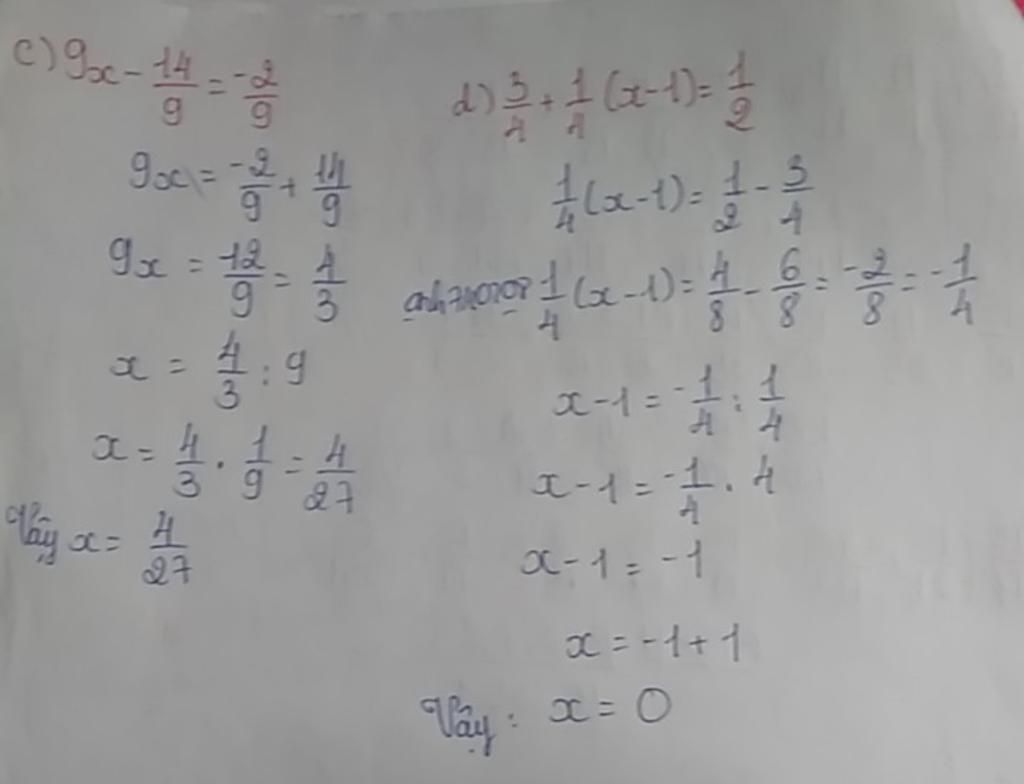 c) 9x - 14/9 = -2/9
9x = -2/9 + 14/9
9x = 12/9 = 4/3
x = 4/3 : 9
x = 4/3 . 1/9 = 4/27
Vậy x = 4/27
d) 3/4 + 1/4 (x-1) = 1/2
1/4 (x-1) = 1/2 - 3/4
1/4 (x-1) = 4/8 - 6/8 = -2/8 = -1/4
x-1 = -1/4 : 1/4
x-1 = -1/4 . 4
x-1 = -1
x = -1+1
Vậy : x = 0